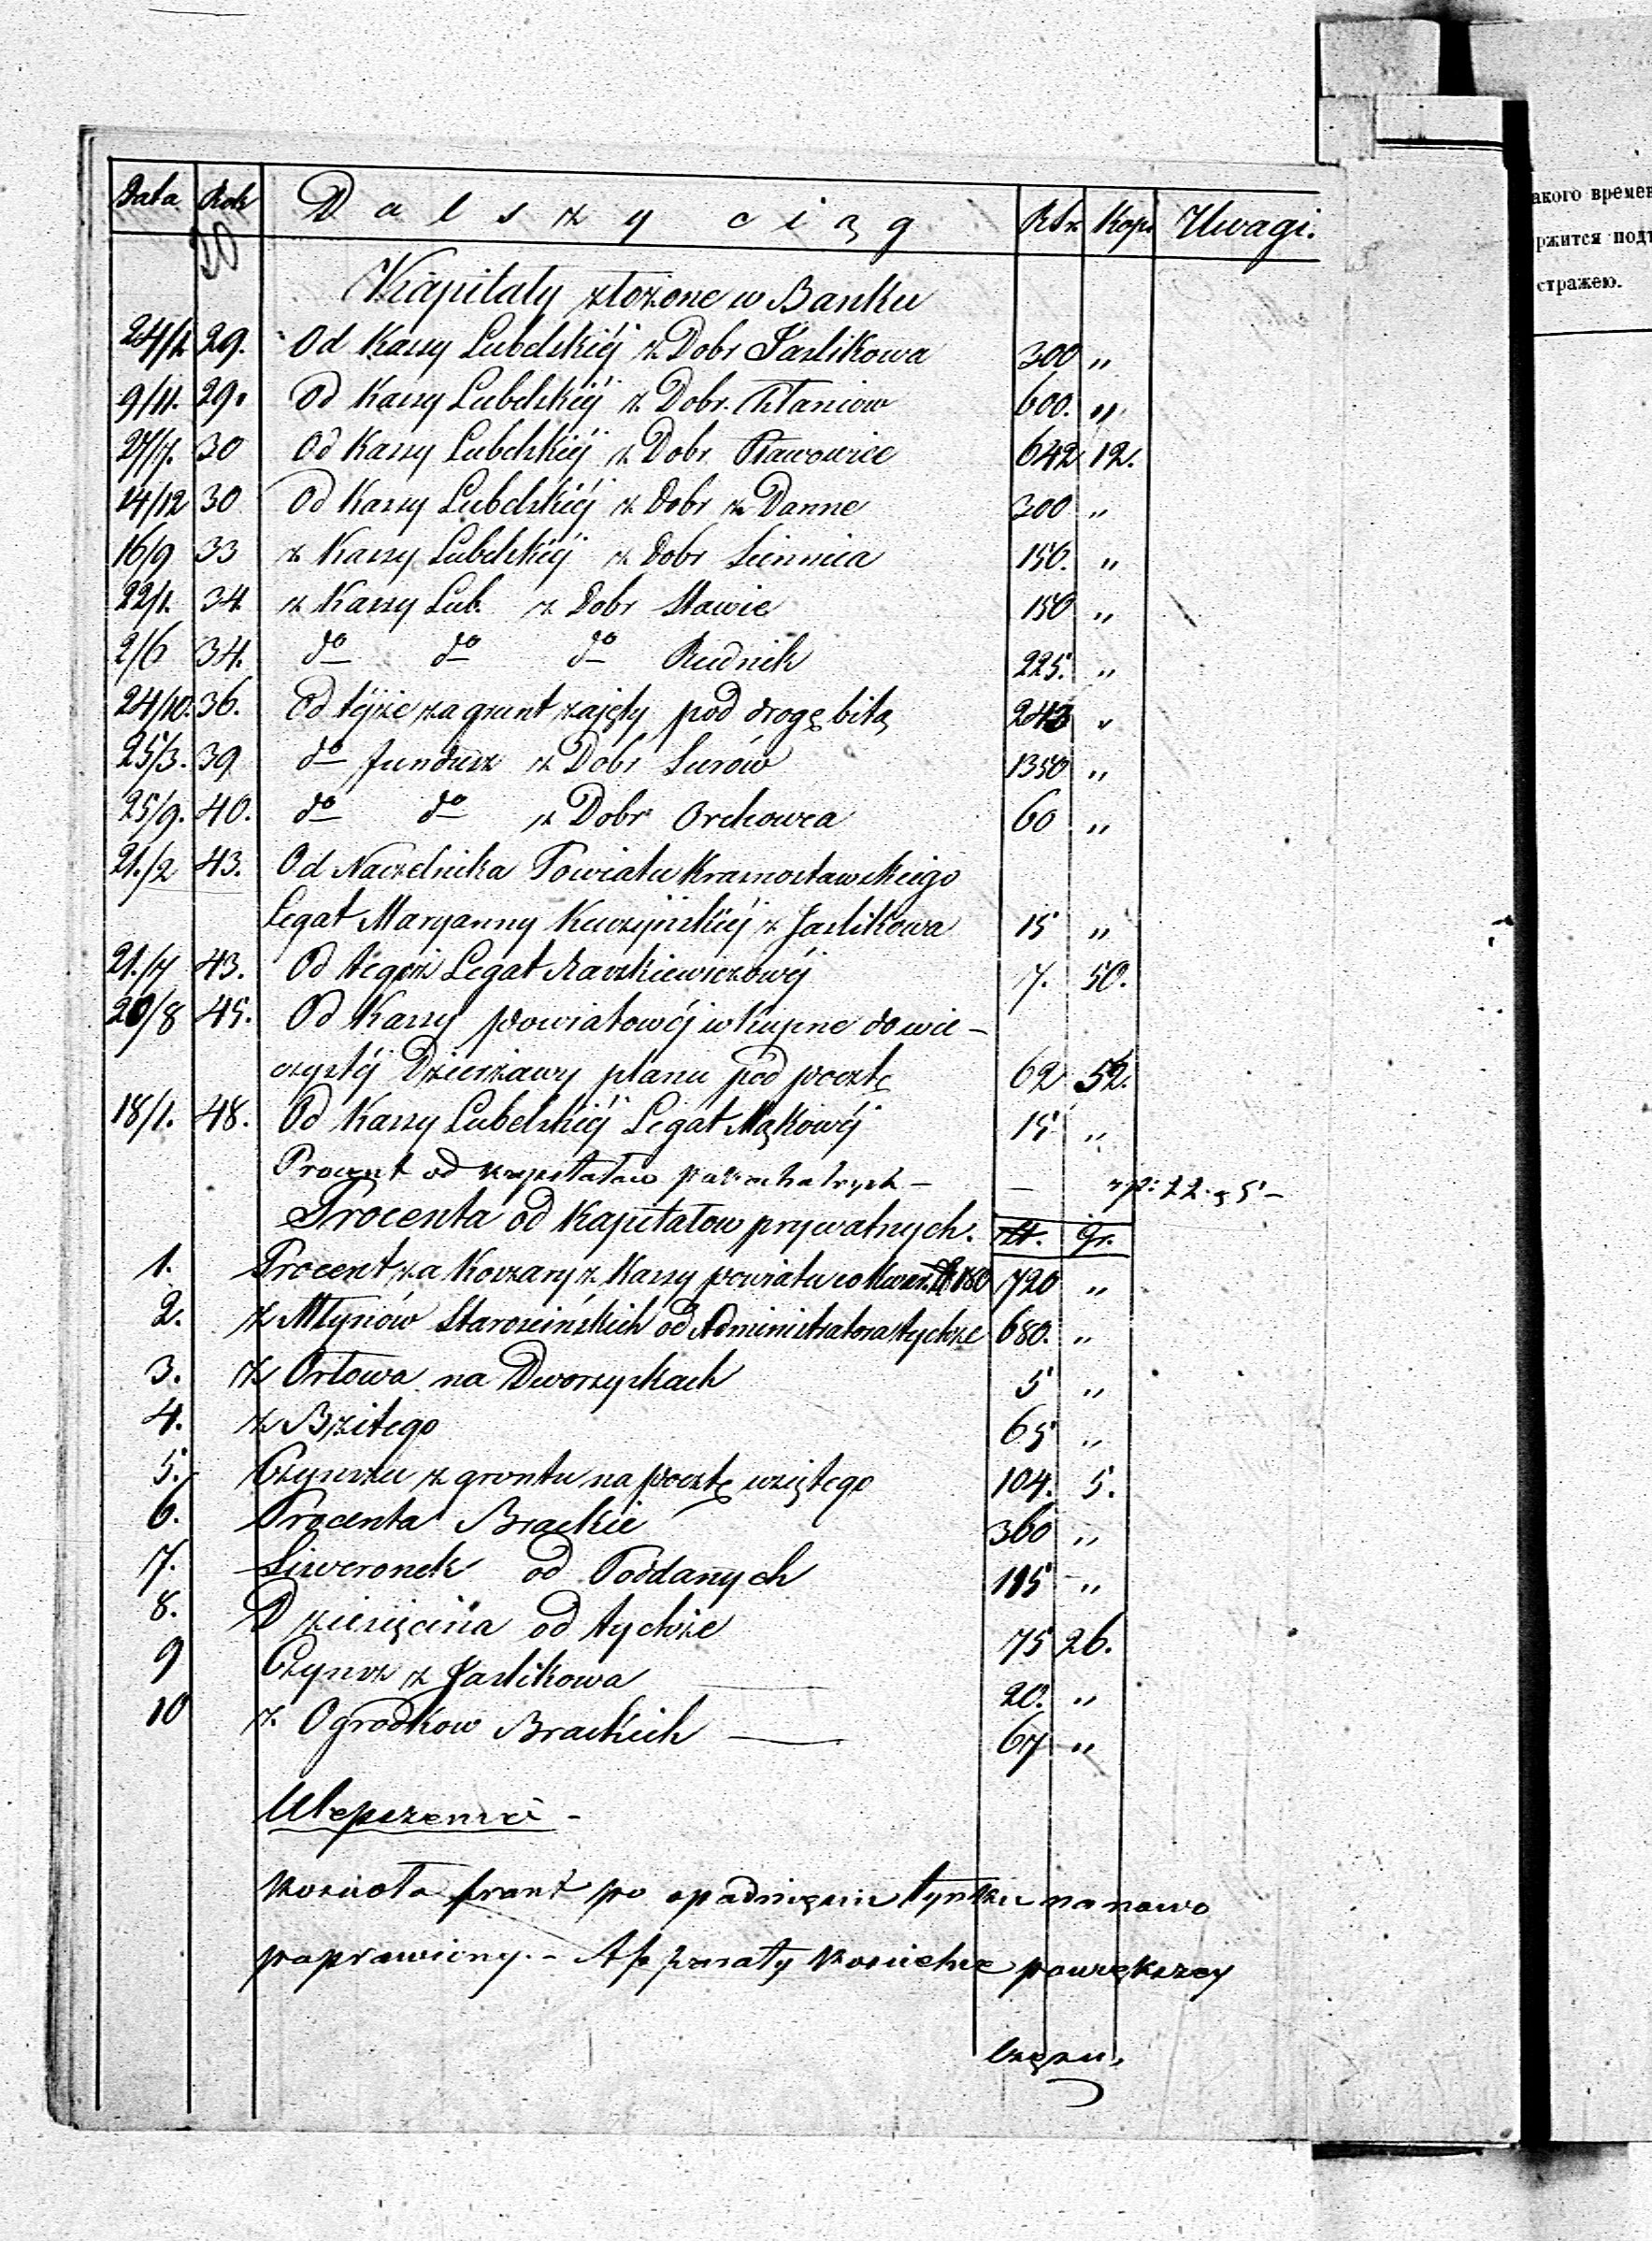 Data Rok Dalszy ciąg RSr. Kop. Uwagi.
20
Kapitały złożone w Banku
24/2 29. Od Kassy Lubelskiéj z Dobr Jaślikowa 300 „
9/11. 29. Od Kassy Lubelskiéj z Dobr. Chłaniow 600. „
27/7. 30 Od Kassy Lubelskiéj z Dobr Pławowice 642 12.
14/12 30 Od Kassy Lubelskiéj z Dobr z Danne 300 „
16/9 33 z Kassy Lubelskiéj z Dobr Siennica 150. „
22/1. 34 z Kassy Lub. z Dobr Stawie 150 „
2/6 34. do do do Rudnik 225. „
24/10. 36. Od téjże za grunt zajęty pod drogę bitą 243 „
25/3. 39 do fundusz z Dobr Surów 1350 „
25/9. 40. do do z Dobr Orchowca 60 „
21./2 43. Od Naczelnika Powiatu Krasnostawskiego
Legat Maryanny Kuczyńskiéj z Jaślikowa 15 „
21./7 43. Od tegoż Legat Raszkiewiczowéj 7. 50.
20/8 45. Od Kassy powiatowéj wkupne do wie-
czystéj Dzierżawy planu pod pocztę 62 52.
18/1. 48. Od Kassy Lubelskiéj Legat Mąkowéj 15 „
Procent od kapitałów —
Procenta od Kapitałow prywatnych. Zł. gr.
1. Procent za Koszary z Kassy powiatu co kwar. 180 720 „
2. z Młynów Starościńskich od Administratora tychże 680. „
3. z Orłowa na Dworzyskach 5 „
4. z Bzitego 65 „
5. Czynszu z grontu na pocztę wziętego 104. 5.
6. Procenta Brackie 360 „
7. Siweronek od Poddanych 115 „
8. Dziesięcina od tychże 75 26.
9 Czynsz z Jaślikowa 20. „
10 z Ogrodkow Brackich 67 „
Ulepszenia -
Kościoła front po opadnięciu tynku na nowo
poprawiony. - Apparaty kościelne powiększéj
części.
акого времен
ржится подъ
стражею.